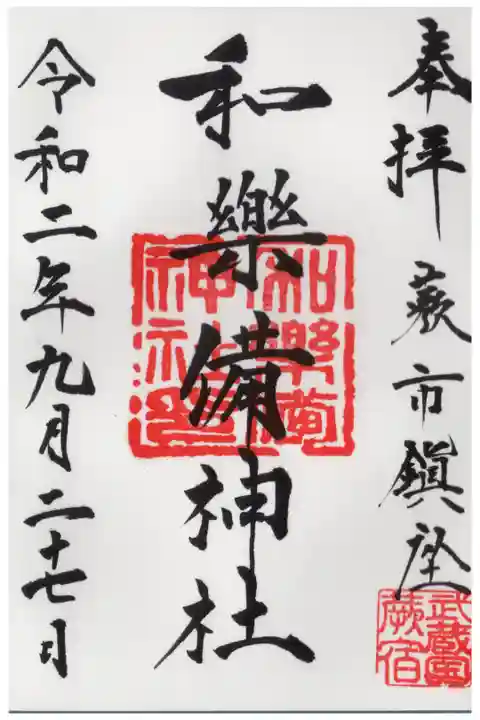 奉拝 蕨市鎮座
和樂備神社
令和二年九月二十七日
和樂備
神社
武蔵国
蕨宿